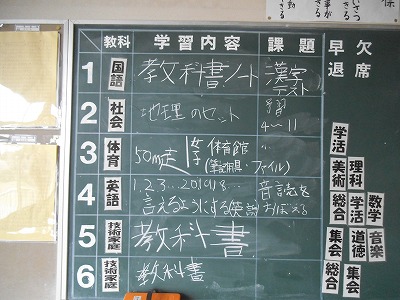 教科 学習内容 課題 早退 欠席
1 国語 教科書 ノート 漢字テスト
2 社会 地理のセット 習 4~11
3 体育 50m走 女子 体育館 (筆記用具・ファイル)
4 英語 1, 2, 3 … 20, 19, 18 … 言えるようにする(英語) 音読をおぼえる
5 技術家庭 教科書
6 技術家庭 教科書
学活
美術 理科
総合 学活 数学
集会 道徳 音楽
総合 集会